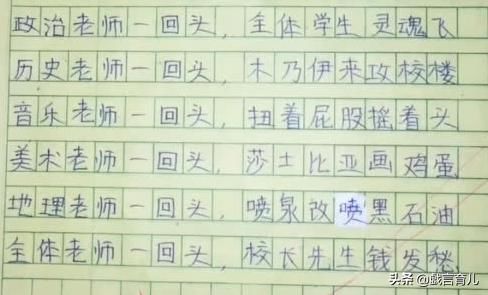 政治老师一回头，全体学生灵魂飞
历史老师一回头，木乃伊来攻校楼
音乐老师一回头，扭着屁股摇着头
美术老师一回头，莎士比亚画鸡蛋
地理老师一回头，喷泉改喷黑石油
全体老师一回头，校长先生钱发愁
头条 @戲言育儿